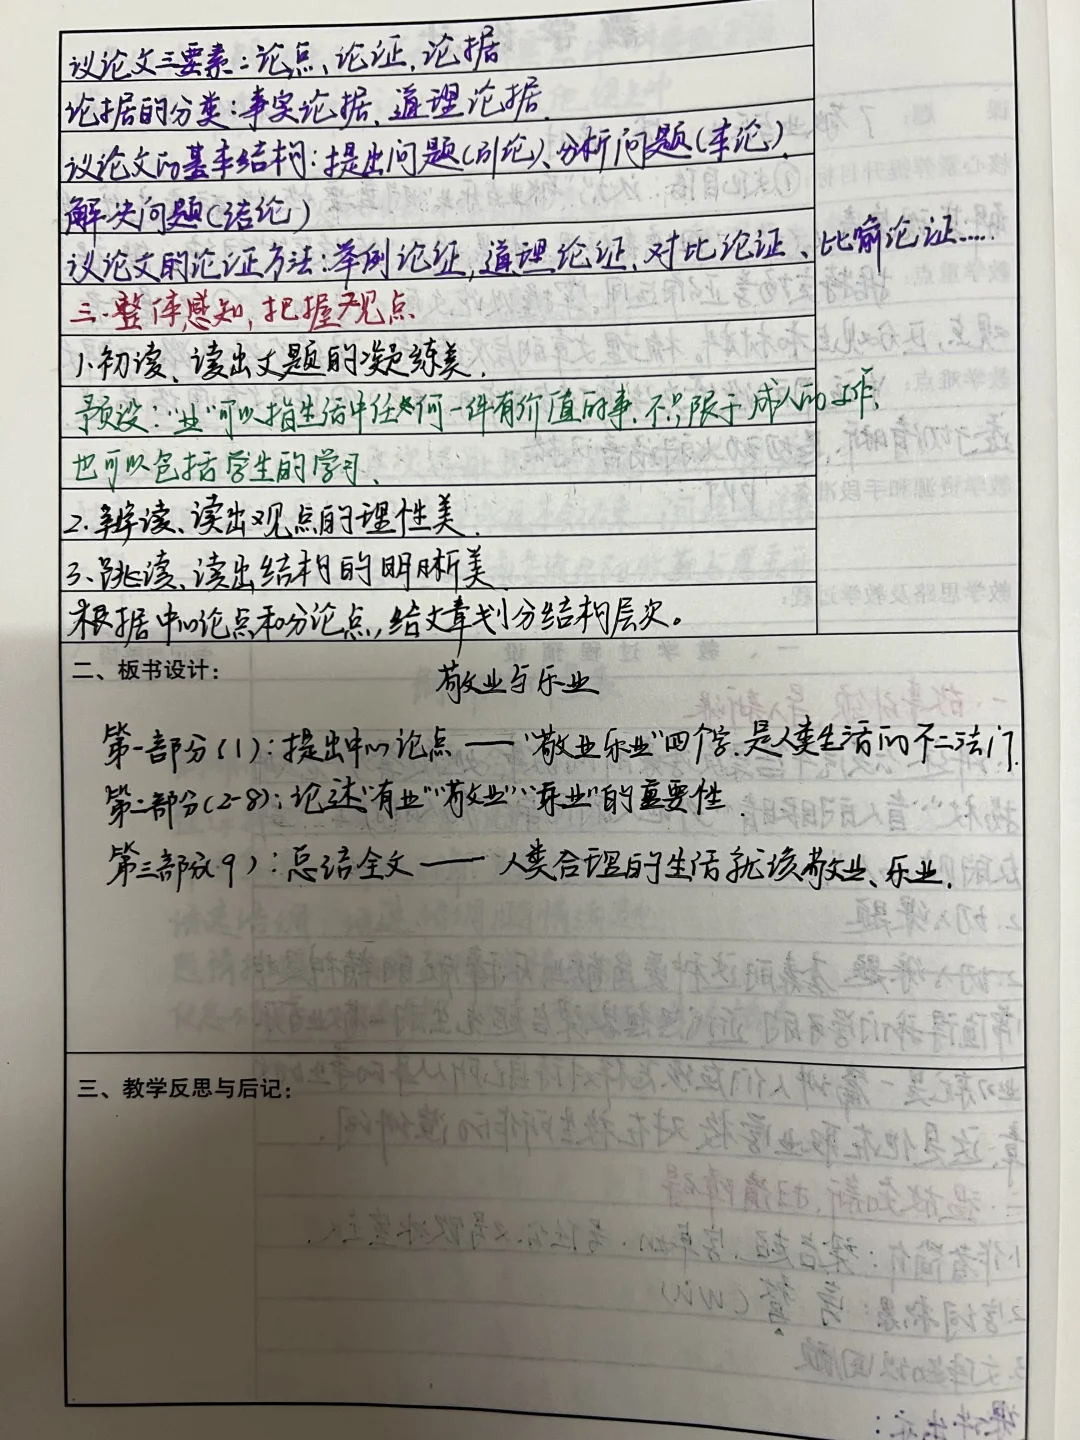 议论文三要素：论点、论证、论据
论据的分类：事实论据、道理论据.
议论文的基本结构：提出问题(引论)、分析问题(本论)、
解决问题(结论)
议论文的论证方法：举例论证,道理论证、对比论证、比喻论证....
三.整体感知,把握观点
1.初读、读出文题的凝练美.
预设："业"可以指生活中任何一件有价值的事.不只限于成人的工作、
也可以包括学生的学习、
2.辨读、读出观点的理性美.
3、跳读、读出结构的明晰美
根据中心论点和分论点,给文章划分结构层次。
二、板书设计：
敬业与乐业
第一部分(1)：提出中心论点——"敬业乐业"四个字.是人类生活的不二法门.
第二部分(2-8)：论述"有业""敬业""乐业"的重要性.
第三部分(9)：总结全文——人类合理的生活就该敬业、乐业.
三、教学反思与后记：